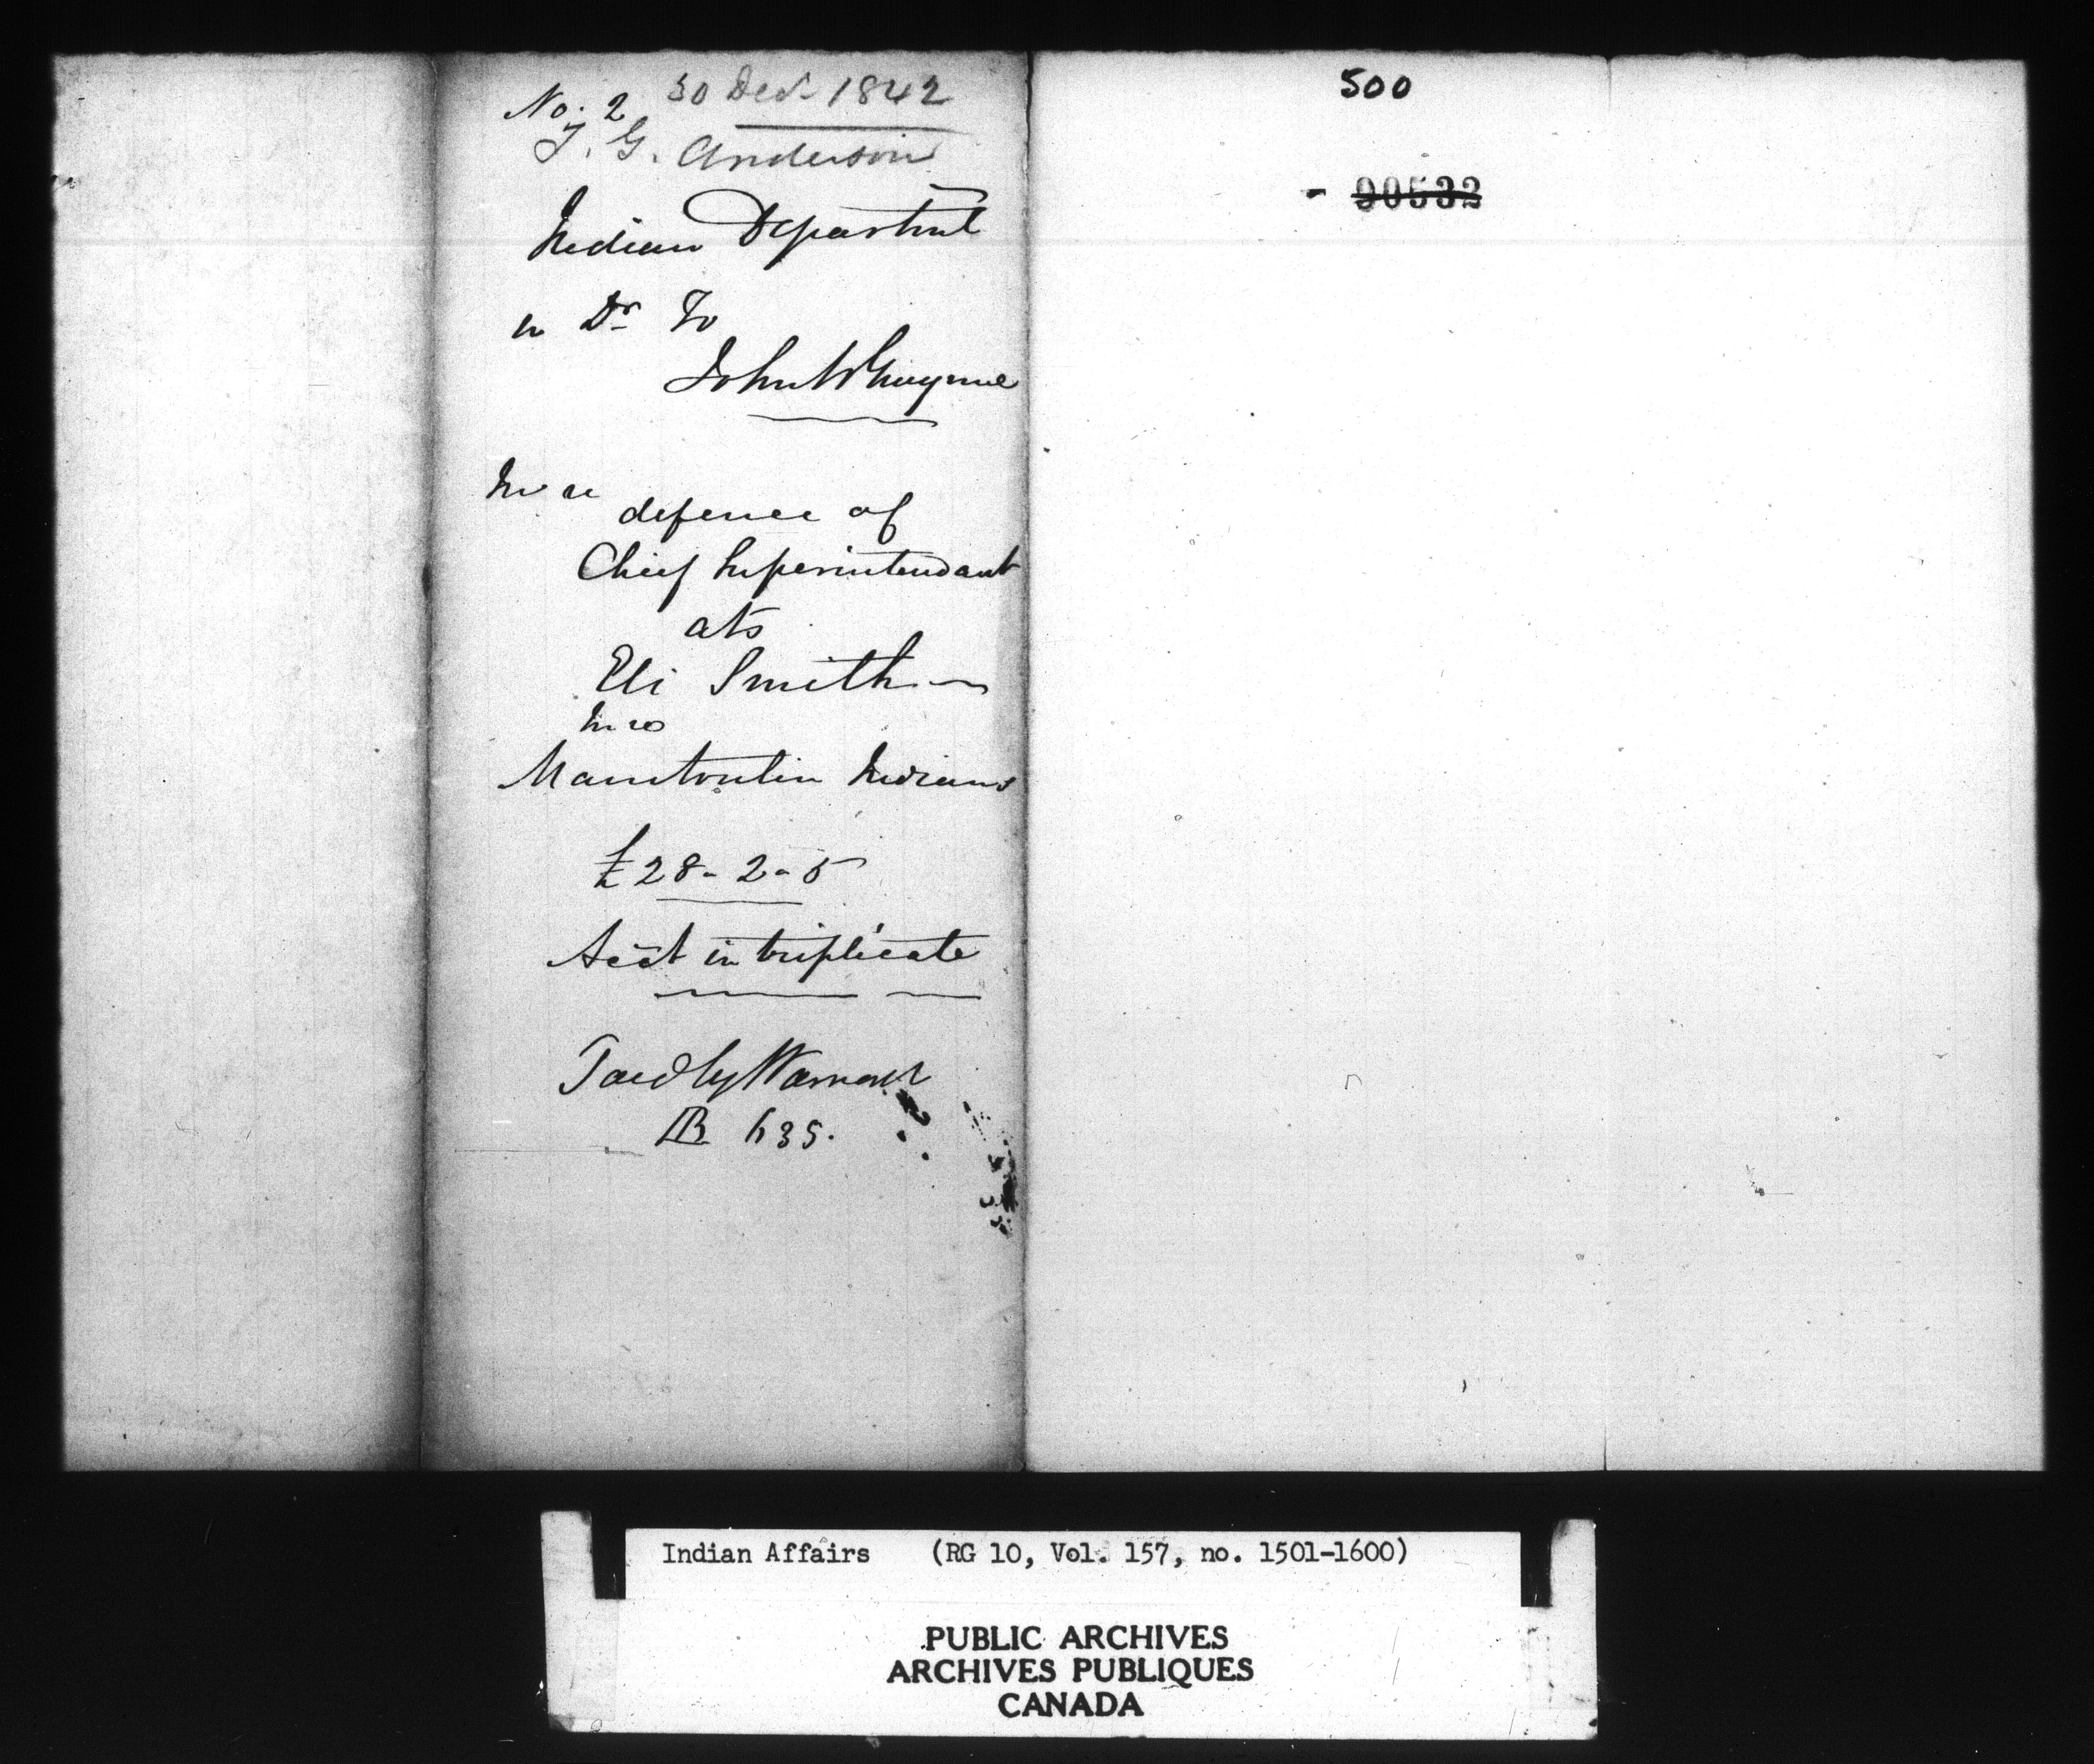 No. 2 30 Decr 1842
T. G. Anderson
Indian Departmt
in Dr To
John W Gwynne
In re
defence of
Chief Superintendant
ats
Eli Smith
In re
Manitoulin Indians
£28-2-5
Acct in triplicate
Paid by Warrant
635.
500
90532
Indian Affairs (RG 10, Vol. 157, no. 1501-1600)
PUBLIC ARCHIVES
ARCHIVES PUBLIQUES
CANADA